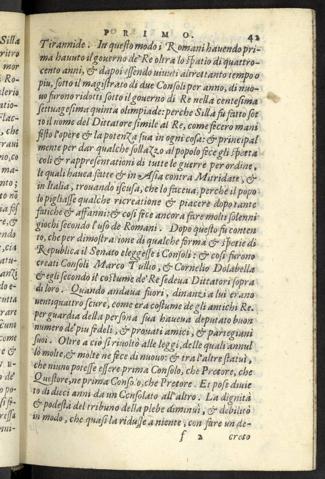 PRIMO. 42
Tirannide. In questo modo i Romani havendo pri-
ma havuto il governo de'Re oltra lo spatio di quattro-
cento anni, & dapoi essendo vivuti altretanto tempo o
piu, sotto il magistrato di due Consoli per anno, di nuo-
vo furono ridotti sotto il governo di Re nella centesima
settuagesima quinta olimpiade: perche Silla fu fatto sot
to il nome del Dittatore simile al Re, come fecero mani
festo l'opere & la potenza sua in ogni cosa: & principal
mente per dar qualche sollazzo al popolo fece gli spetta
coli & rappresentationi di tutte le guerre per ordine,
le quali haveva fatte & in Asia contra Mitridate, &
in Italia, trovando iscusa, che lo faceva, perche il popo
lo pigliasse qualche ricreatione & piacere dopo tante
fatiche & affanni: & cosi fece ancora fare molti solenni
giochi secondo l'uso de Romani. Dopo questo fu conten
to, che per dimostratione di qualche forma & spetie di
Republica il Senato eleggesse i Consoli: & cosi furono
creati Consoli Marco Tullio, & Cornelio Dolabella
& egli secondo il costume de'Re sedeva Dittatori sopra
di loro. Quando andava fuori, dinanzi a lui erano
ventiquattro scure, come era costume de gli antichi Re.
per guardia della persona sua haveva deputato buon
numero de'piu fedeli, & provati amici, & partegiani
suoi. Oltre a ciò si rivoltò alle leggi, delle quali annul
lò molte, & molte ne fece di nuovo: & tra l'altre statuì,
che niuno potesse essere prima Consolo, che Pretore, che
Questore, ne prima Consolo, che Pretore. Et pose divie
to di dieci anni da un Consolato all'altro. La dignità
& podestà del tribuno della plebe diminuì, & debilitò
in modo, che quasi la ridusse a niente, con fare un de-
f 2 creto